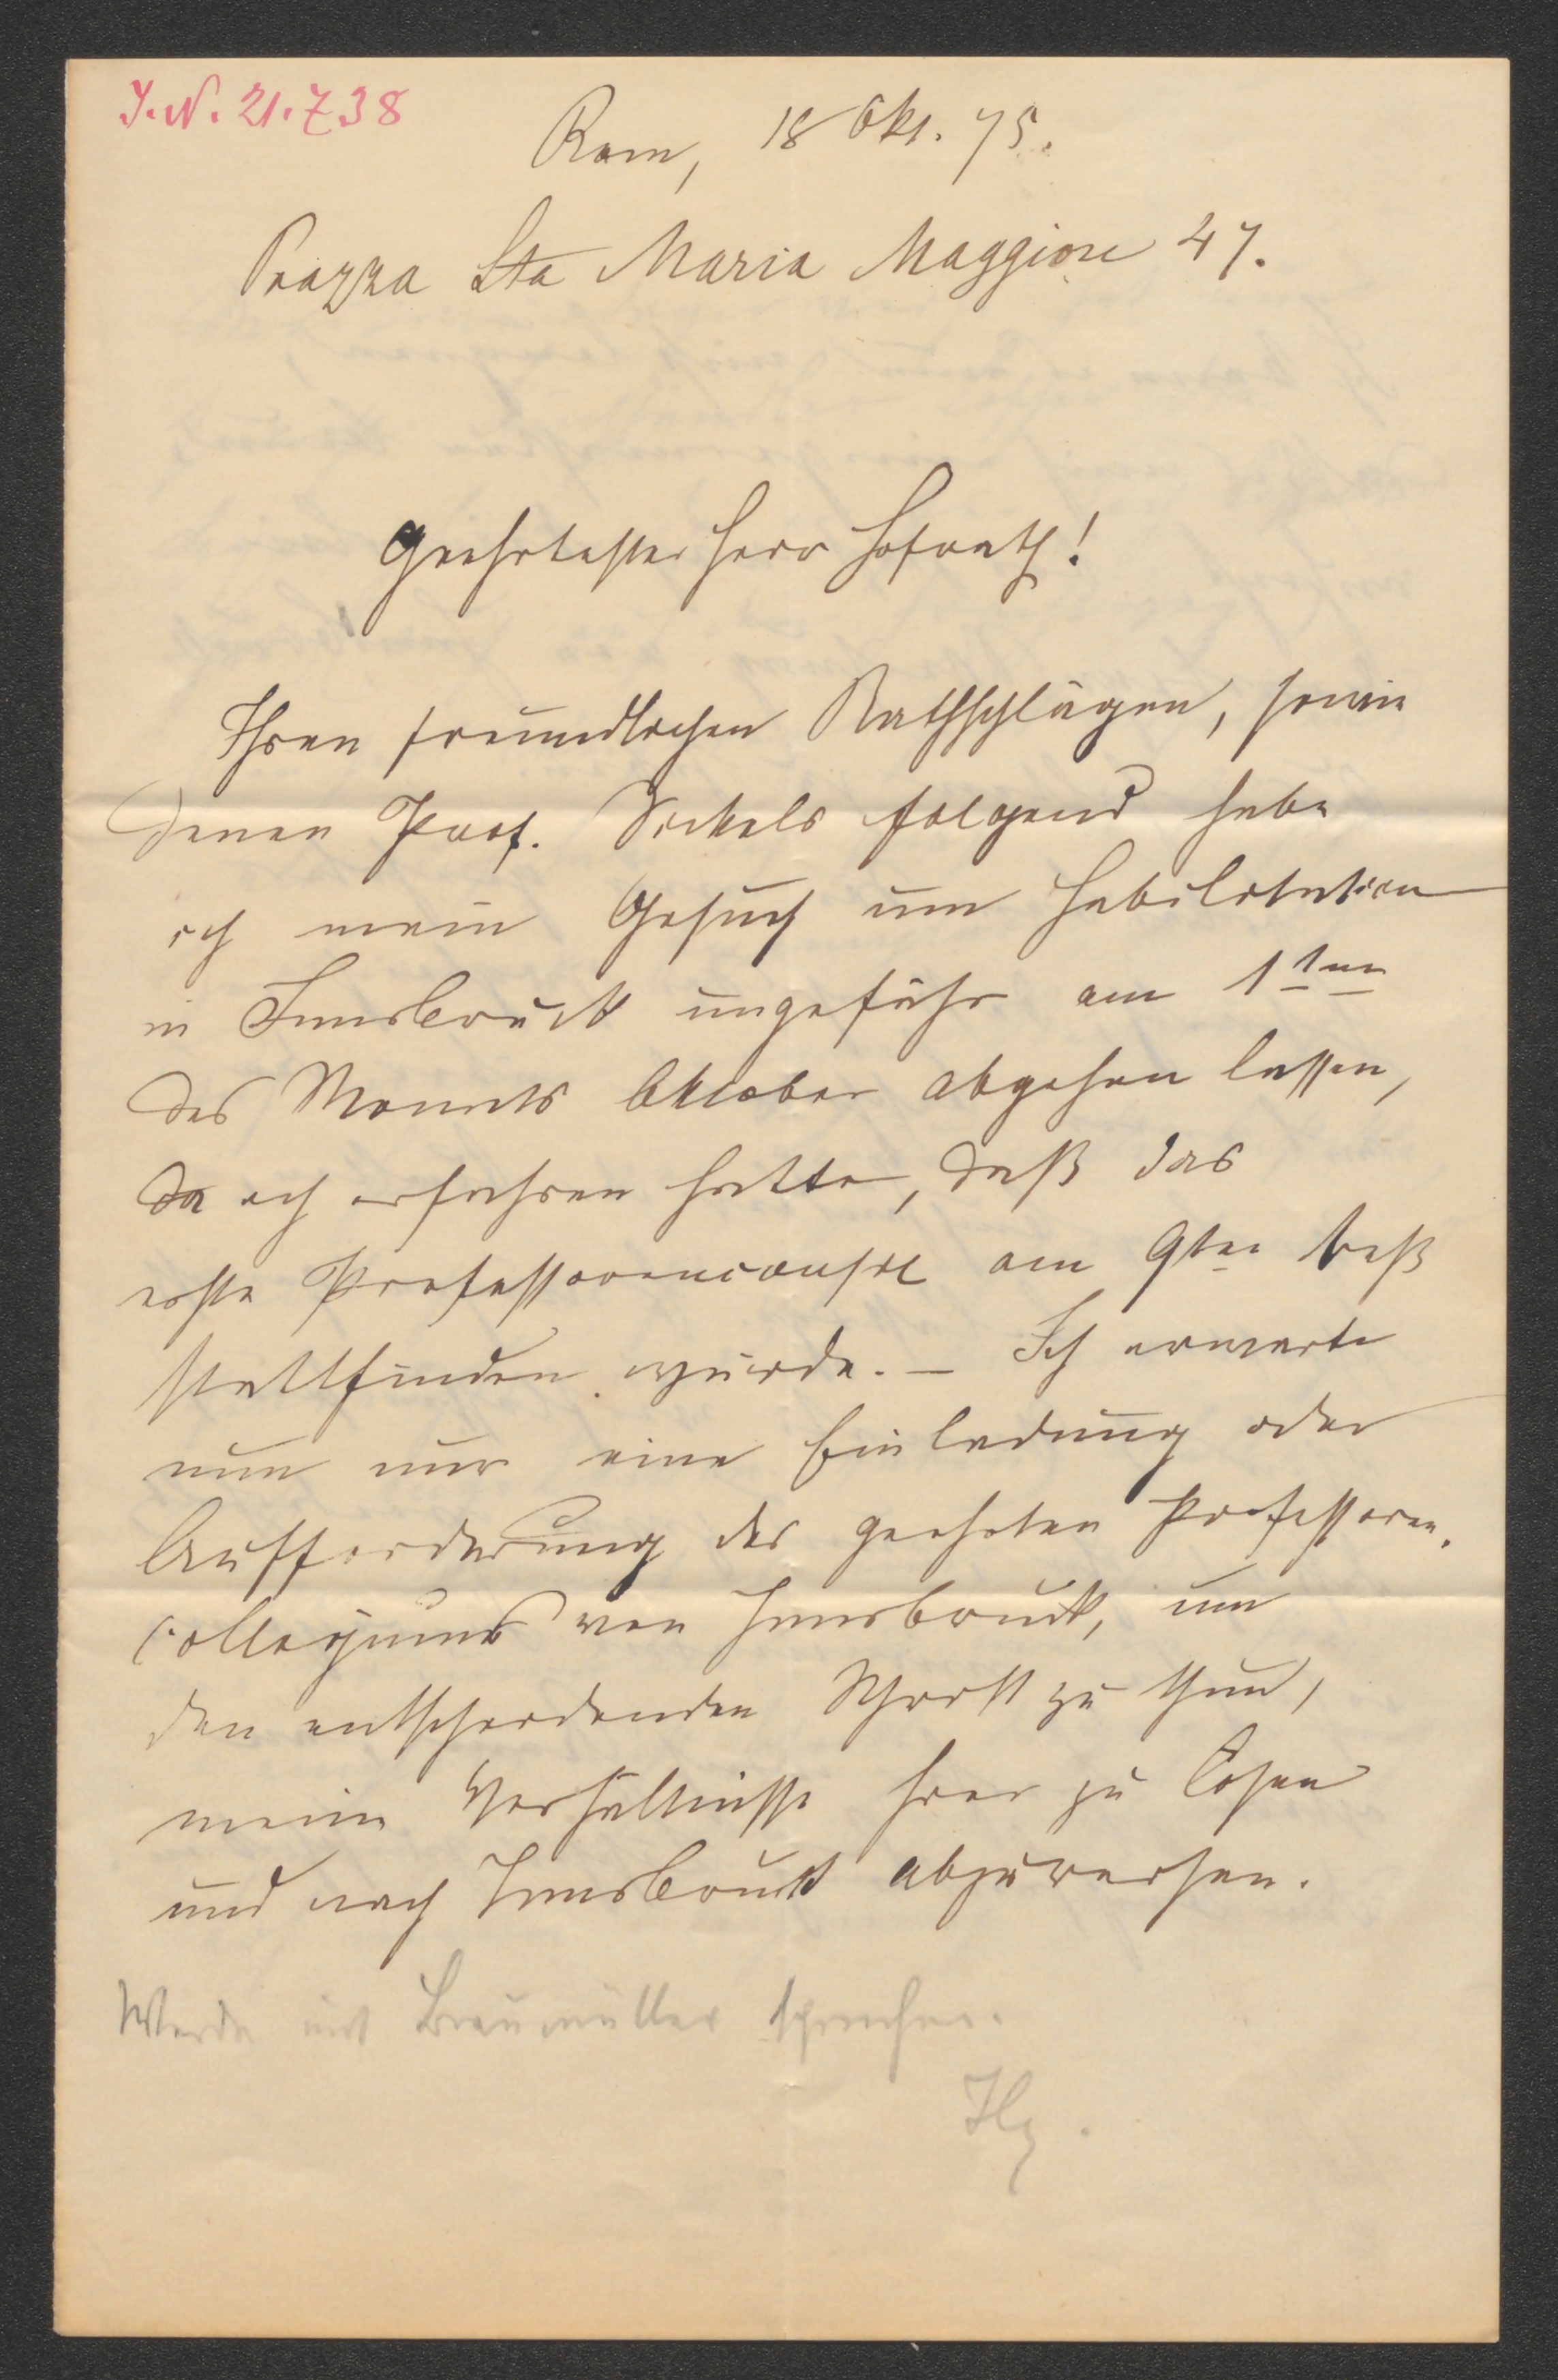 J.N. 21.738
Rom, 18 Okt. 75.
Piazza Sta Maria Maggiore 47.
Geehrtester Herr Hofrath!
Ihren freundlichen Rathschlägen, sowie
denen Prof. Sickels folgend habe
ich mein Gesuch um Habilitation
in Innsbruck ungefähr am 1ten
des Monats Oktober abgehen lassen,
da ich erfahren hatte, daß das
erste Professorenconseil am 9ten
stattfinden würde. – Ich erwarte
nun nur eine Einladung oder
Aufforderung des geehrten Professoren-
collegiums von Innsbruck, um
den entscheidenden Schritt zu thun,
meine Verhältnisse hier zu lösen
und nach Innsbruck abzureisen.
Werde mit Braumüller sprechen.